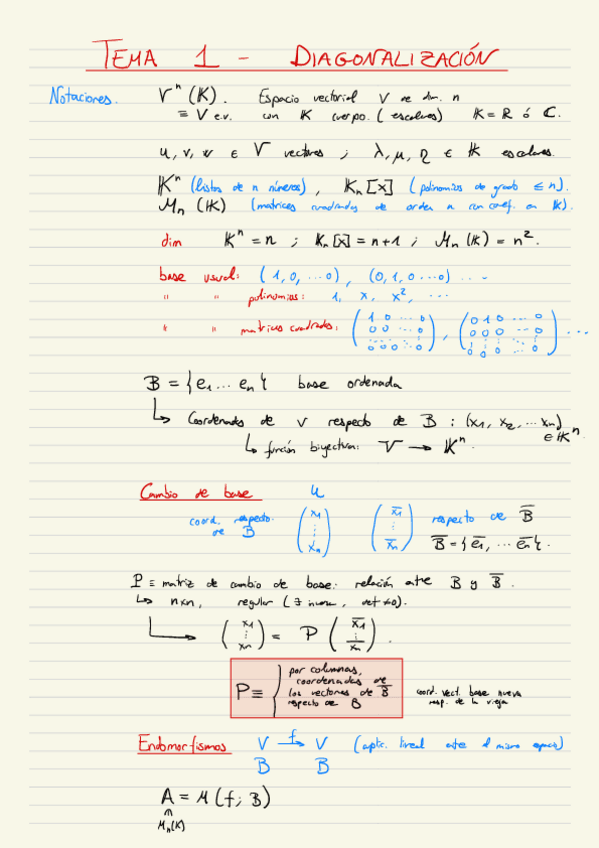 TEMA 1 - DIAGONALIZACIÓN
Notaciones. Vⁿ(K). Espacio vectorial V de dim. n
≡ V e.v. con K cuerpo. (escalares) K = R ó C.
u, v, w ∈ V vectores ; λ, μ, η ∈ K escalares.
Kⁿ (listas de n números), Kₙ[x] (polinomios de grado ≤ n).
Mₙ(K) (matrices cuadradas de orden n con coef. en K).
dim Kⁿ = n ; Kₙ[x] = n+1 ; Mₙ(K) = n².
base usual: (1,0,...0), (0,1,0...0) ...
" " polinomios: 1, x, x², ...
" " matrices cuadradas: (1 0 ... 0 / 0 0 ... 0 / 0 0 0 ... 0), (0 1 0 ... 0 / 0 0 ... 0 / 0 0 ... 0) ...
B = {e₁ ... eₙ} base ordenada
↳ Coordenadas de v respecto de B : (x₁, x₂, ... xₙ) ∈ Kⁿ
↳ función biyectiva: V → Kⁿ.
Cambio de base u
coord. respecto de B (x₁ ⋮ xₙ) (x̅₁ ⋮ x̅ₙ) respecto de B̅
B̅ = {e̅₁, ... e̅ₙ}.
P ≡ matriz de cambio de base: relación entre B y B̅.
↳ nxn, regular (∃ inversa, det ≠ 0).
↳ (x₁ ⋮ xₙ) = P (x̅₁ ⋮ x̅ₙ).
P ≡ { por columnas,
coordenadas de
los vectores de B̅
respecto de B
coord. vect. base nueva
resp. de la vieja
Endomorfismos V f→ V (aplic. lineal entre el mismo espacio)
B B
A = M(f; B)
∩
Mₙ(K)